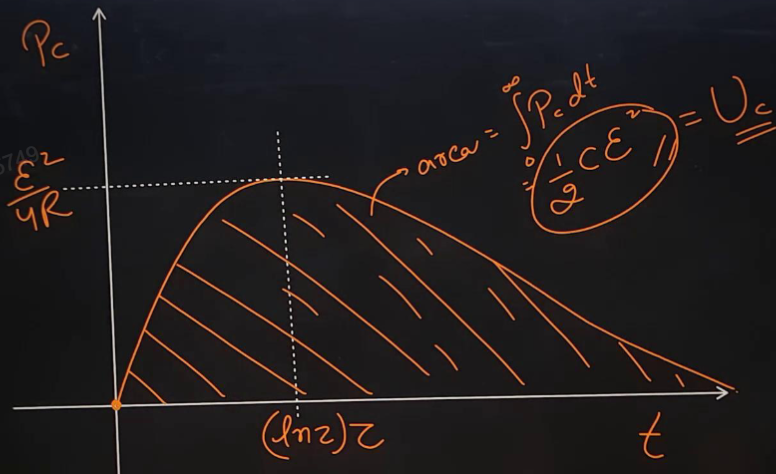 Pc
ε²/4R
area = ∫₀^∞ Pc dt
= ½ C ε² = Uc
(ln2)τ
t